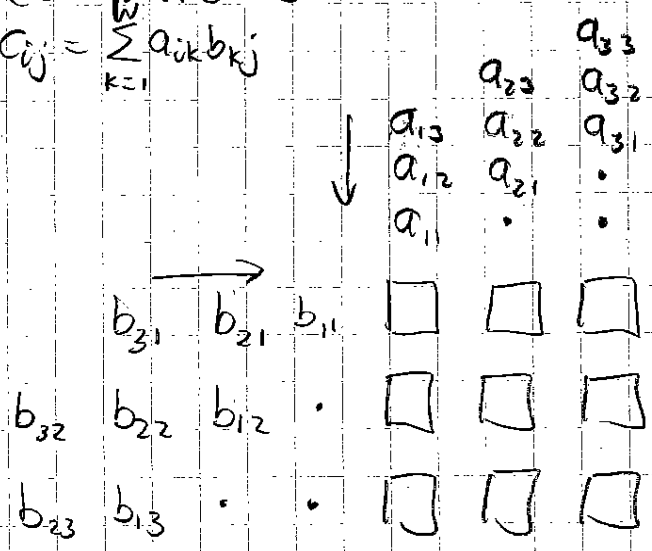 c_{ij} = \sum_{k=1}^{N} a_{ik} b_{kj}
a_{33}
a_{23} a_{32}
a_{13} a_{22} a_{31}
a_{12} a_{21} ·
a_{11} · ·
b_{31} b_{21} b_{11}
b_{32} b_{22} b_{12} ·
b_{23} b_{13} · ·